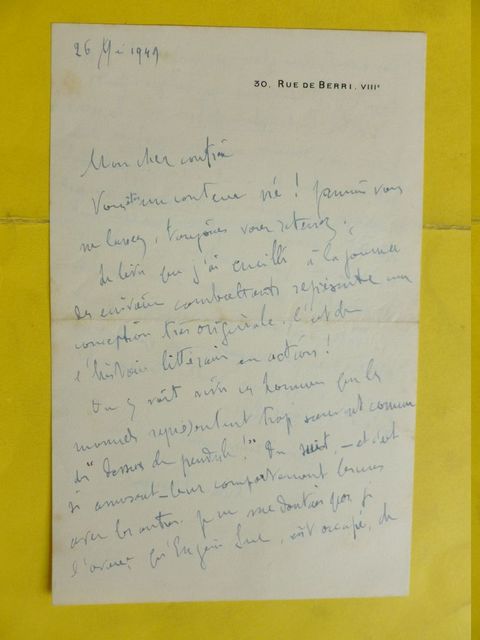 26 Mai 1949
30, RUE DE BERRI. VIIIe
Mon cher confrère
Vous êtes un conteur né ! Jamais vous
ne lassez, toujours vous retenez.
Le livre que j'ai cueilli à la journée
des écrivains combattants représente une
conception très originale. C'est de
l'histoire littéraire en action !
On y voit vivre ces hommes que les
manuels représentent trop souvent comme
des "dessus de pendule !" On suit, - et c'est
si amusant - leur comportement les uns
avec les autres. Je ne me doutais pas, je
l'avoue, qu'Eugène Sue, eût occupé, de